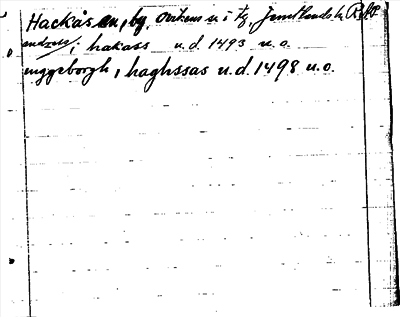 Hackås sn, by, Ovikens n i tg, Jämtlands l,
i hakass u.d. 1493 u.o.
inggeborgh, i haghssas u.d. 1498 u.o.